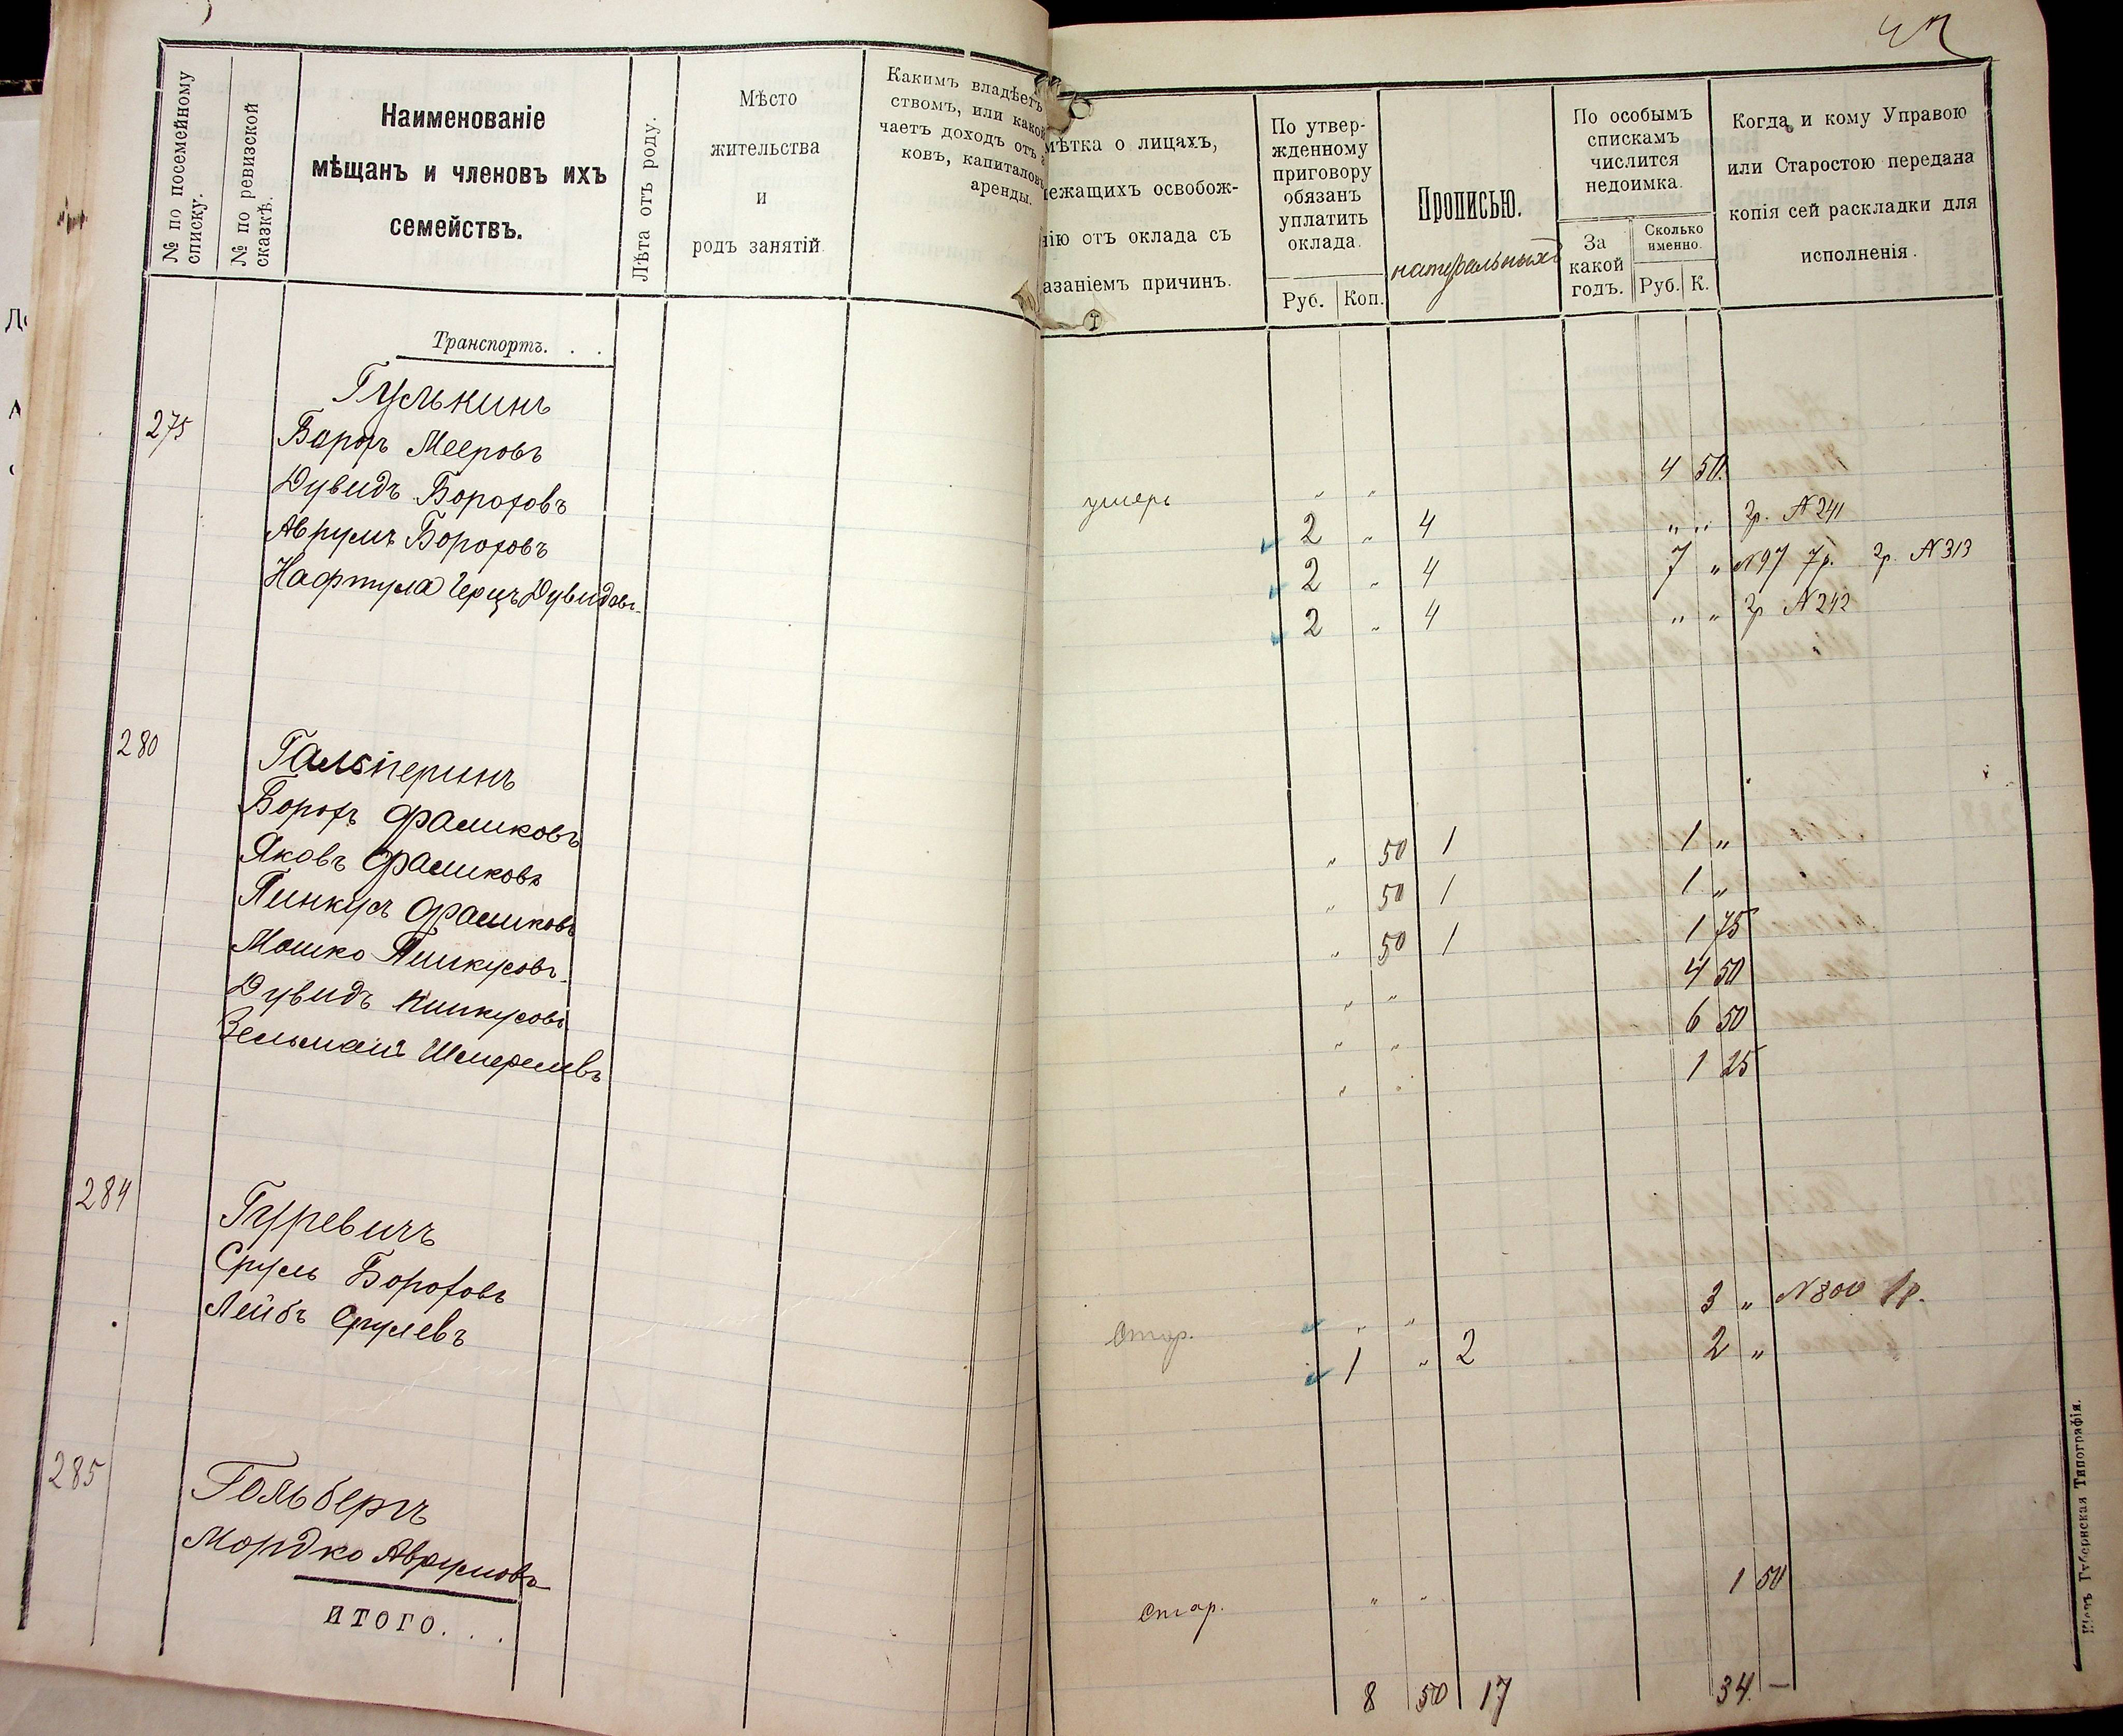 № по посемейному списку.
№ по ревизской сказкѣ.
Наименованіе
мѣщанъ и членовъ ихъ
семействъ.
Лѣта отъ роду.
Мѣсто
жительства
и
родъ занятій.
Какимъ владѣетъ
ствомъ, или какой
чаетъ доходъ отъ
ковъ, капиталовъ
аренды.
Транспортъ. . .
Гулькинъ
275 Борохъ Мееровъ
Дувидъ Бороховъ
Аврумъ Бороховъ
Нафтула Герцъ Дувидовъ
280 Гальперинъ
Борохъ Фаликовъ
Яковъ Фаликовъ
Пинкусъ Фаликовъ
Мошко Пинкусовъ
Дувидъ Пинкусовъ
Зельманъ Шмерелевъ
284 Гуревичъ
Сруль Бороховъ
Лейбъ Срулевъ
285 Гольбергъ
Мордко Аврумовъ
ИТОГО. . .
мѣтка о лицахъ,
лежащихъ освобож-
нію отъ оклада съ
азаніемъ причинъ.
По утвер-
жденному
приговору
обязанъ
уплатить
оклада.
Руб. Коп.
Прописью.
натуральныхъ
По особымъ
спискамъ
числится
недоимка.
За
какой
годъ.
Сколько
именно.
Руб. К.
Когда и кому Управою
или Старостою передана
копія сей раскладки для
исполненія.
умеръ " " 4 50.
2 " 4 " " 2р. № 241
2 " 4 7 " №97 7р. 2р. № 313
2 " 4 " " 2р № 242
" 50 1 1 "
" 50 1 1 "
" 50 1 1 75
" " 4 50
" " 6 50
" " 1 25
" " 3 " № 800 1р.
Стар. 1 " 2 2 "
Стар. " " 1 50
8 50 17 34. —
Губернская Типографія.